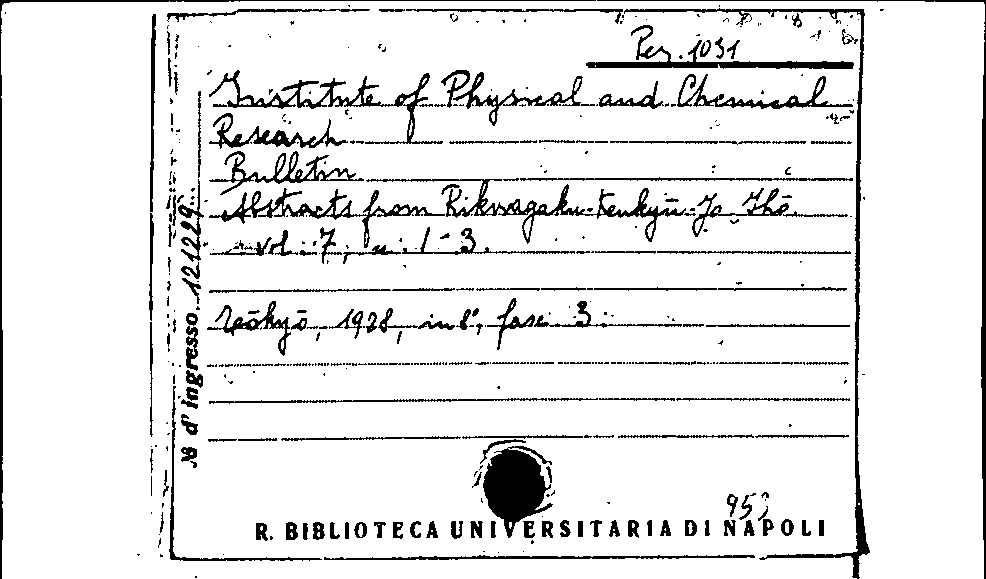 Per. 1031
Institute of Physical and Chemical
Research
Bulletin
Abstracts from Rikwagaku-Kenkyū-Jo Ihō.
vol. 7, n. 1-3.
Tōkyō, 1928, in 8°, fasc. 3.
№ d' ingresso. 121229
953
R. BIBLIOTECA UNIVERSITARIA DI NAPOLI